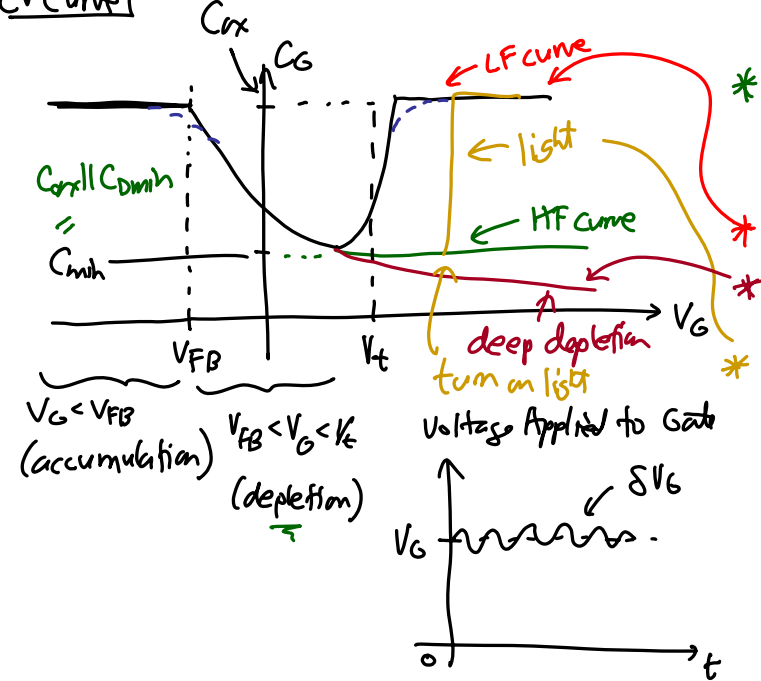 CV Curve
Cox
CG
LF curve
light
Cox||CDmin
=
HF curve
Cmin
VG
VFB
Vt
deep depletion
turn on light
VG < VFB
(accumulation)
VFB < VG < Vt
(depletion)
Voltage Applied to Gate
δVG
VG
0
t